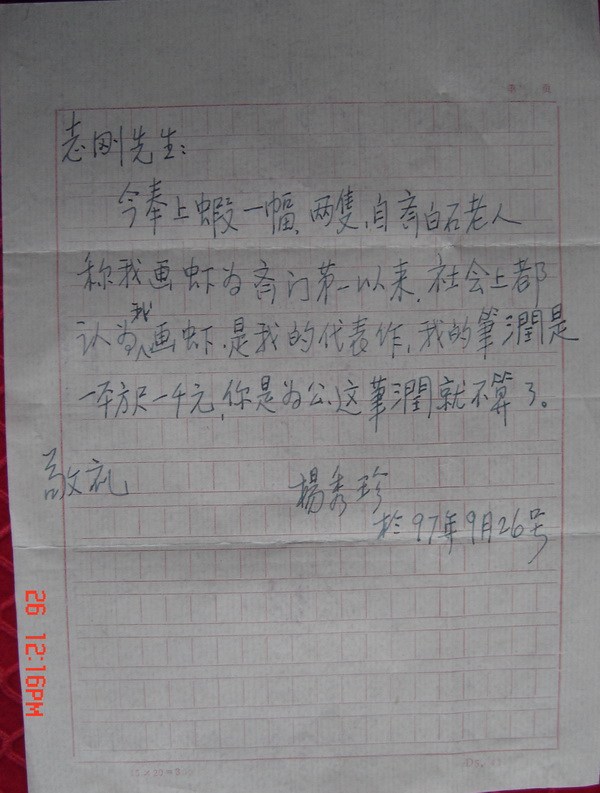 志刚先生：
今奉上蝦一幅，两隻，自斋白石老人
称我画虾为斋门第一以来，社会上都
认为我画虾，是我的代表作，我的筆潤是
一平方尺一千元，你是为公，这筆潤就不算了。
敬礼
楊秀珍
於97年9月26号
26 12:16PM